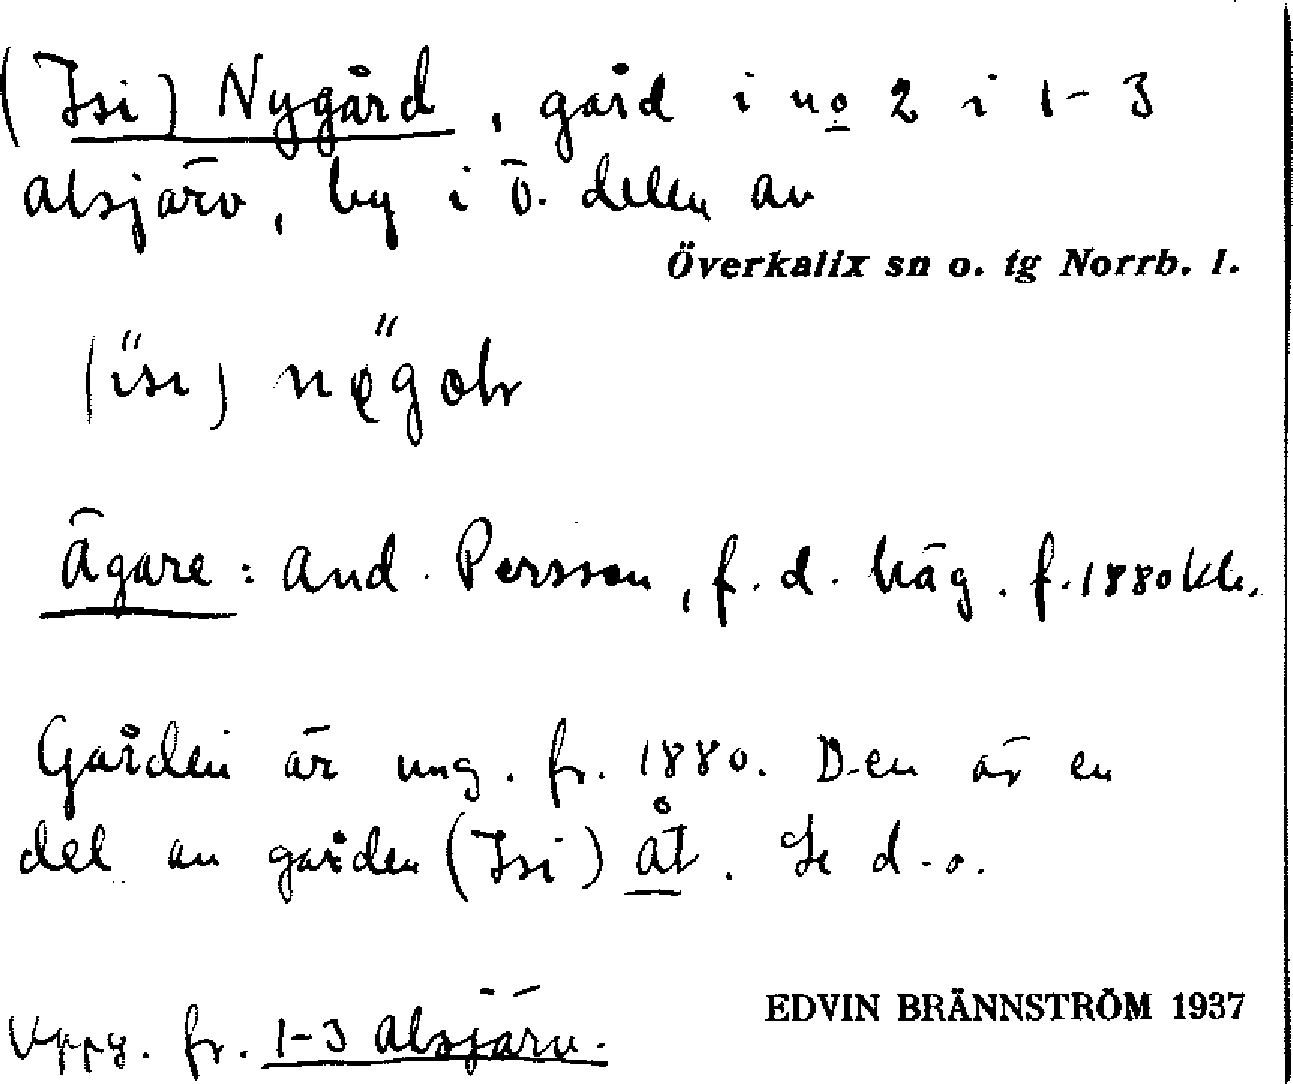 (Isi) Nygård, gård i no 2 i 1-3
Alsjärv, by i ö. delen av
Överkalix sn o. tg Norrb. l.
Ägare: And. Persson, f. d. häg. f. 1880
Gården är ung. fr. 1880. Den är en
del av gården (Isi) åt. Se d.o.
Uppg. fr. 1-3 Alsjärv.
EDVIN BRÄNNSTRÖM 1937